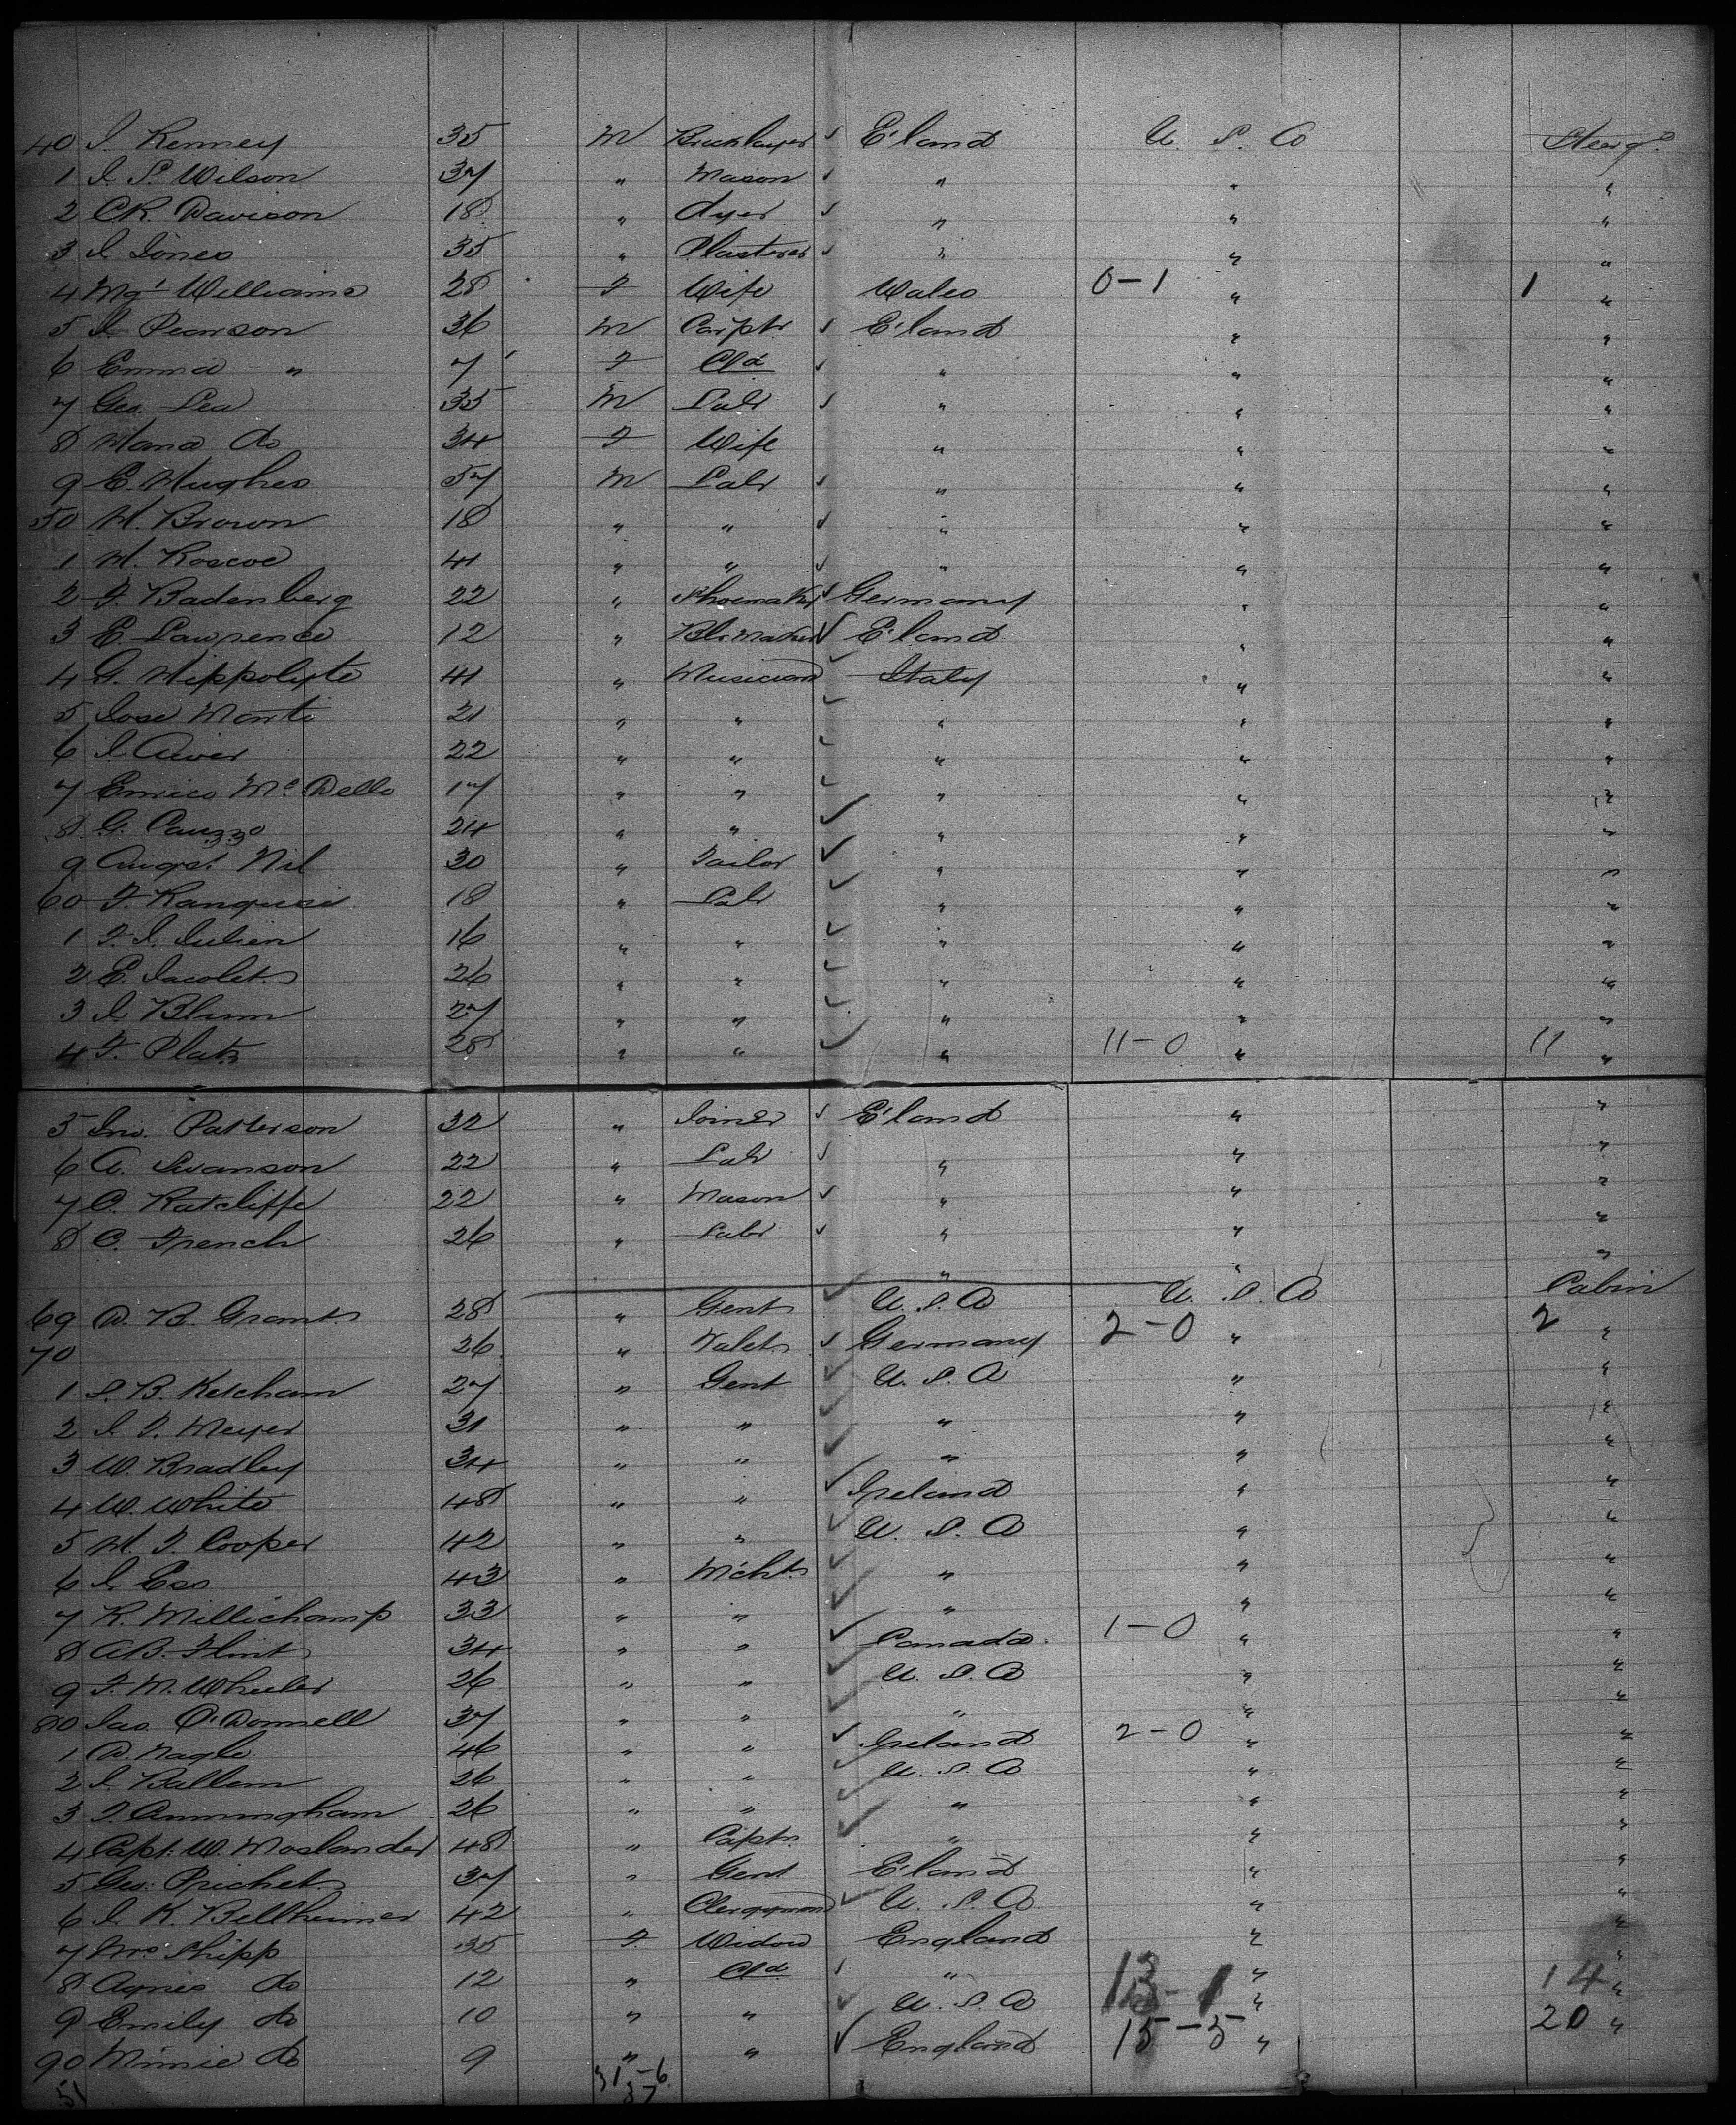 40 J. Kenney 35 M Bricklayer ✓ E'land U. S. A Steerg.
1 J. S. Wilson 37 " Mason ✓ " " "
2 C.R. Davison 18 " dyer ✓ " " "
3 J. Jones 35 " Plasterer ✓ " " "
4 Mgt Williams 28 F Wife Wales 0-1 " 1 "
5 J. Pearson 36 M Carptr ✓ E'land " "
6 Emma " 7 F Cld ✓ " " "
7 Geo. Lea 35 M Labr ✓ " " "
8 do 34 F Wife " " "
9 E. Hughes 57 M Labr ✓ " " "
50 H. Brown 18 " " ✓ " " "
1 H. Roscoe 41 " " ✓ " " "
2 F. Badenberg 22 " Shoemaker ✓ Germany " "
3 E. Lawrence 12 " ✓ E'land " "
4 G. Hippolyte 41 " Musician ✓ Italy " "
5 Jose Monti 21 " " ✓ " " "
6 J. 22 " " ✓ " " "
7 Enrico Mc Dello 17 " " ✓ " " "
8 G. Cauzzo 24 " " ✓ " " "
9 Augst Nil 30 " Tailor ✓ " " "
60 F. 18 " Labr ✓ " " "
1 F. J. Julien 16 " " ✓ " " "
2 E. Jacolet 26 " " ✓ " " "
3 J. Blum 27 " " ✓ " " "
4 F. Platz 28 " " ✓ " 11-0 " 11 "
5 Jno. Patterson 32 " Joiner ✓ E'land " "
6 A. Swanson 22 " Labr ✓ " " "
7 C. Ratcliffe 22 " Mason ✓ " " "
8 C. French 26 " Labr ✓ " " "
69 D. B. Grant 28 " Gent ✓ U. S. A U. S. A Cabin
70 26 " Valet ✓ Germany 2-0 " 2 "
1 S. B. Ketcham 27 " Gent ✓ U. S. A " "
2 J. F. Meyer 31 " " ✓ " " "
3 W. Bradley 34 " " ✓ " " "
4 W. White 48 " " ✓ Ireland " "
5 H. F. Cooper 42 " " ✓ U. S. A " "
6 J. 43 " Mcht. ✓ " " "
7 R. Millichamp 33 " " ✓ " " "
8 A.B. Flint 34 " " ✓ Canada. 1-0 " "
9 F. M. Wheeler 26 " " ✓ U. S. A " "
80 Jas. O'Donnell 37 " " ✓ " " "
1 D. Nagle. 46 " " ✓ Ireland 2-0 " "
2 J. Ballem 26 " " ✓ U. S. A " "
3 26 " " ✓ " " "
4 Capt. W. Moslander 48 " Captn. ✓ " " "
5 Geo. Prichet 37 " Gent E'land " "
6 J. K. Billheimer 42 " Clergyman ✓ U. S. A " "
7 Mrs Shipp 35 F. Widow England " "
8 Agnes do 12 " Cld ✓ " 13-1 " 14 "
9 Emily do 10 " " ✓ U. S. A 15-5 " 20 "
90 Minie do 9 " " ✓ England "
51 31-6
37